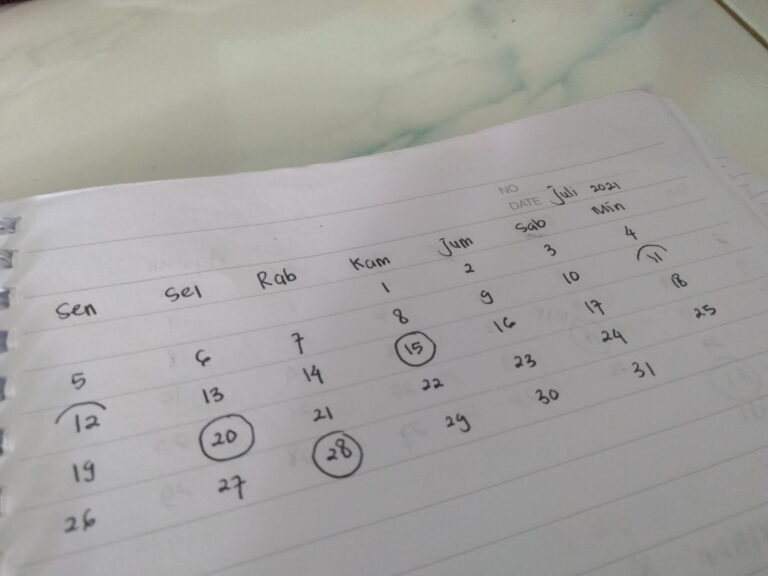 NO
DATE Juli 2021
Sen Sel Rab Kam Jum Sab Min
1 2 3 4
5 6 7 8 9 10 11
12 13 14 15 16 17 18
19 20 21 22 23 24 25
26 27 28 29 30 31